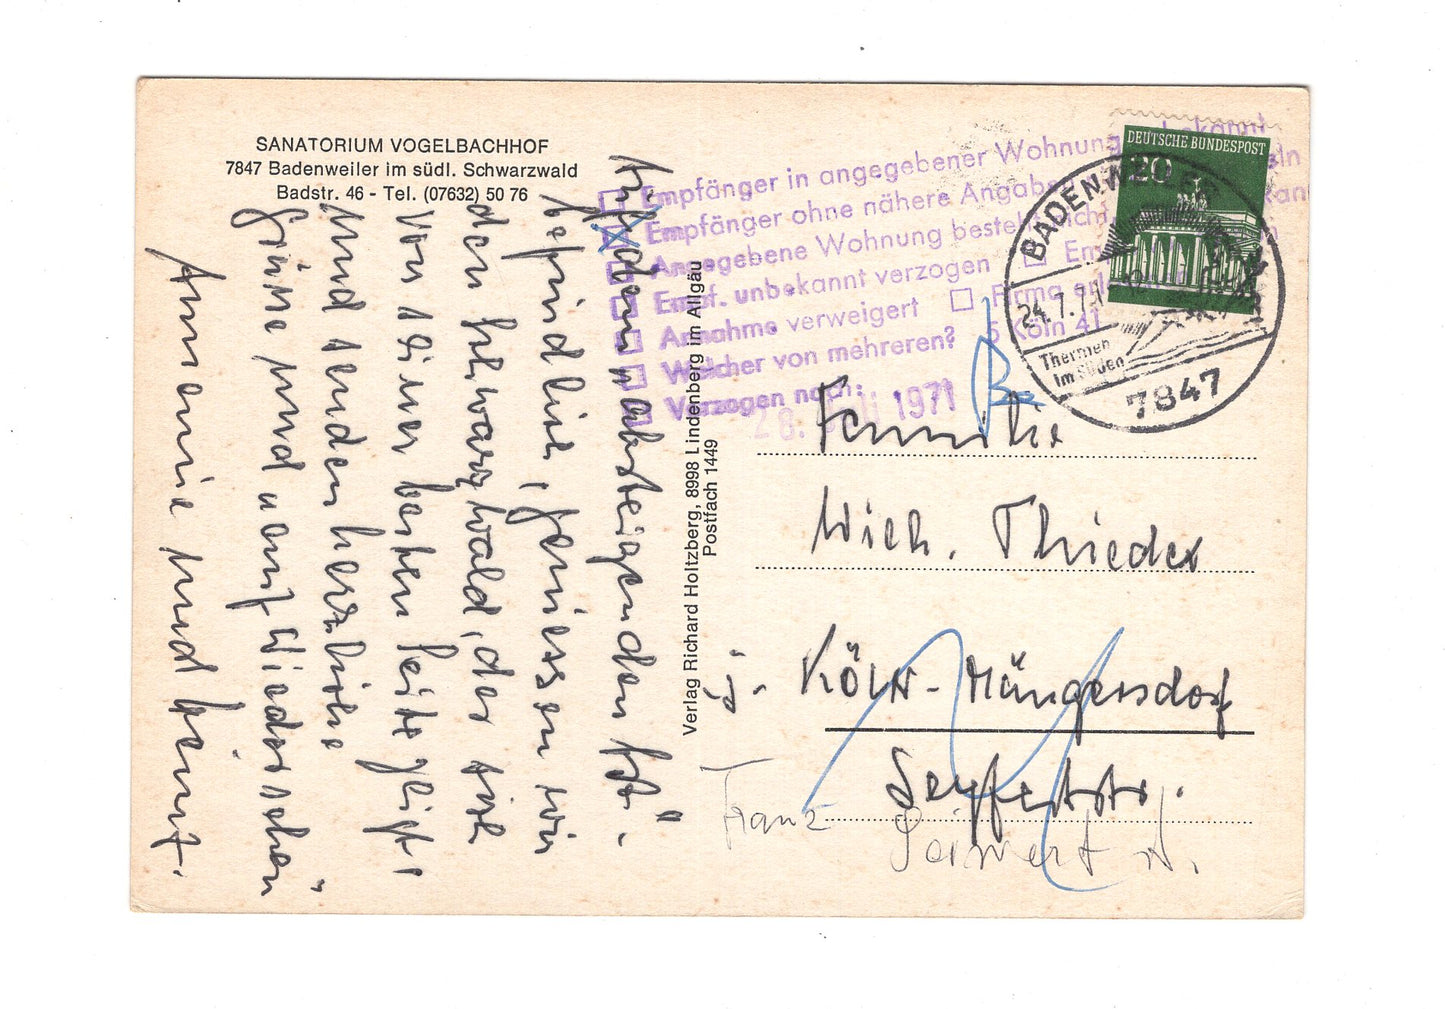 SANATORIUM VOGELBACHHOF
7847 Badenweiler im südl. Schwarzwald
Badstr. 46 - Tel. (07632) 50 76
Auf dem absteigenden Ast
befindlich, geniessen wir
den Schwarzwald, der sich
von seiner besten Seite zeigt
und senden herzliche
Grüße und auf Wiedersehen
Annemie und
Verlag Richard Holtzberg, 8998 Lindenberg im Allgäu
Postfach 1449
Empfänger in angegebener Wohnung unbekannt
Empfänger ohne nähere Angabe
Angegebene Wohnung besteht nicht
Empf. unbekannt verzogen
Annahme verweigert Firma
Welcher von mehreren? 5 Köln 41
Verzogen nach:
28. Juli 1971
DEUTSCHE BUNDESPOST
20
BADENWEILER
24.7.71-12
Thermen
Im Süden
7847
Familie
Wich. Thieder
Köln-Müngersdorf
Seyffertstr.
Franz
Seiwert St.